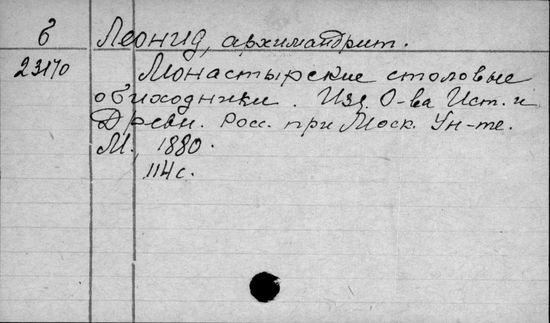 б Леонид, архимандрит.
23170 Монастырские столовые
обиходники. Изд. О-ва Ист. и
Древн. Росс. при Моск. Ун-те.
М., 1880.
114 с.